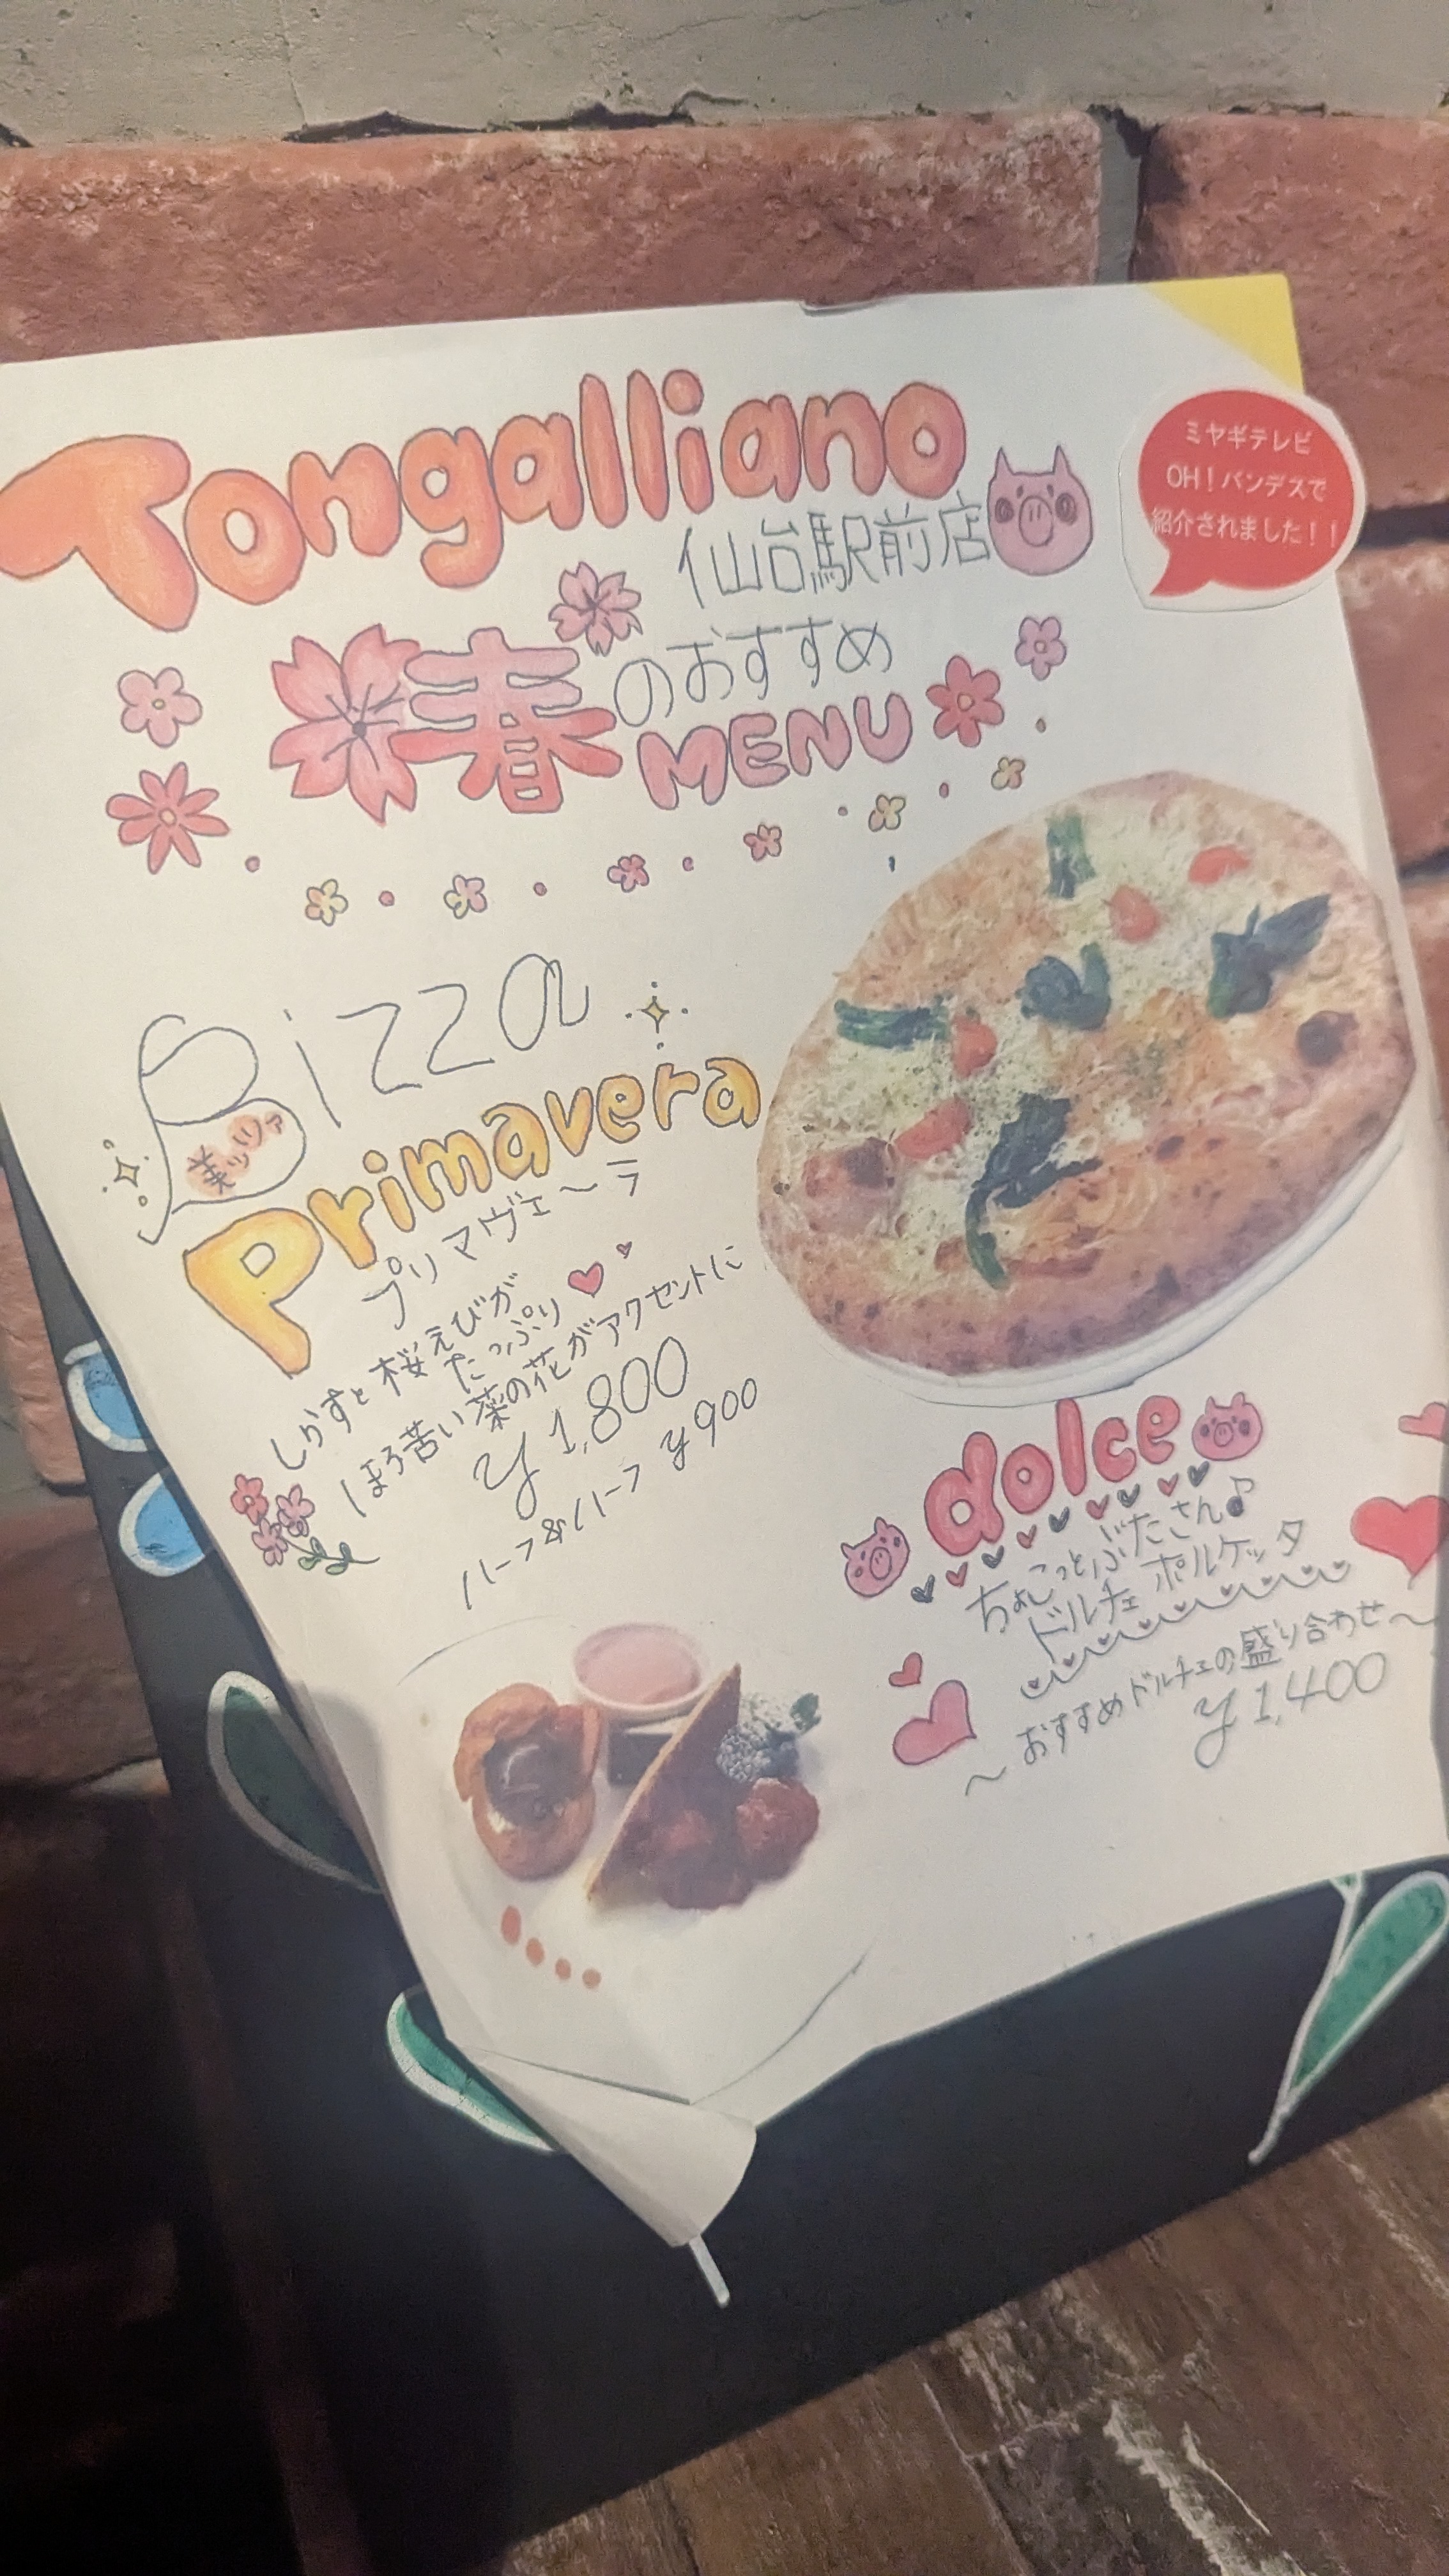 Tongalliano
仙台駅前店
ミヤギテレビ
OH!バンデスで
紹介されました!!
春のおすすめ
MENU
Bizza
美ッツァ
Primavera
プリマヴェ～ラ
しらすと桜えびが
たっぷり
ほろ苦い菜の花がアクセントに
¥1,800
ハーフ&ハーフ ¥900
dolce
ちょこっとぶたさん♪
ドルチェ ポルケッタ
～おすすめドルチェの盛り合わせ～
¥1,400